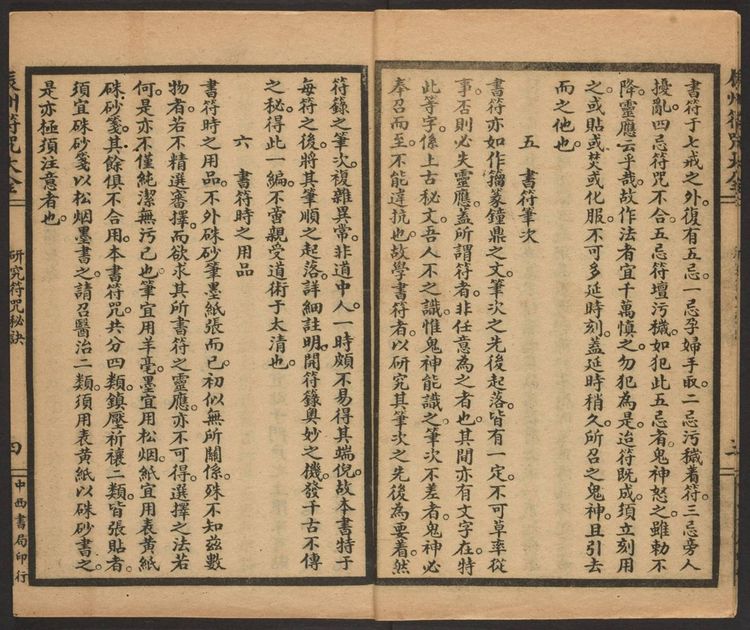 書符于七戒之外。復有五忌。一忌孕婦手取二忌污穢着符三忌旁人
擾亂四忌符咒不合五忌符壇污穢如犯此五忌者鬼神怒之雖勅不
降靈應云乎哉故作法者宜千萬慎之勿犯為是迨符既成須立刻用
之或貼或焚或化服不可多延時刻蓋延時稍久所召之鬼神且引去
而之他也
五 書符筆次
書符亦如作籀篆鐘鼎之文筆次之先後起落皆有一定不可草率從
事否則必失靈應蓋所謂符者非任意為之者也其間亦有文字在特
此等字係上古秘文吾人不之識惟鬼神能識之筆次不差者鬼神必
奉召而至不能違抗也故學書符者以研究其筆次之先後為要着然
符籙之筆次複雜異常非道中人一時頗不易得其端倪故本書特于
每符之後將其筆順之起落詳細註明開符籙奧妙之機發千古不傳
之秘得此一編不啻親受道術于太清也
六 書符時之用品
書符時之用品不外硃砂筆墨紙張而已初似無所關係殊不知茲數
物者若不精選審擇而欲求其所書符之靈應亦不可得選擇之法若
何是亦不僅純潔無污已也筆宜用羊毫墨宜用松烟紙宜用表黃紙
硃砂箋其餘俱不合用本書符咒共分四類鎮壓祈禳二類皆張貼者
須宜硃砂箋以松烟墨書之請召醫治二類須用表黃紙以硃砂書之
是亦極須注意者也
州符咒大全
研究符咒秘訣
四
中西書局印行